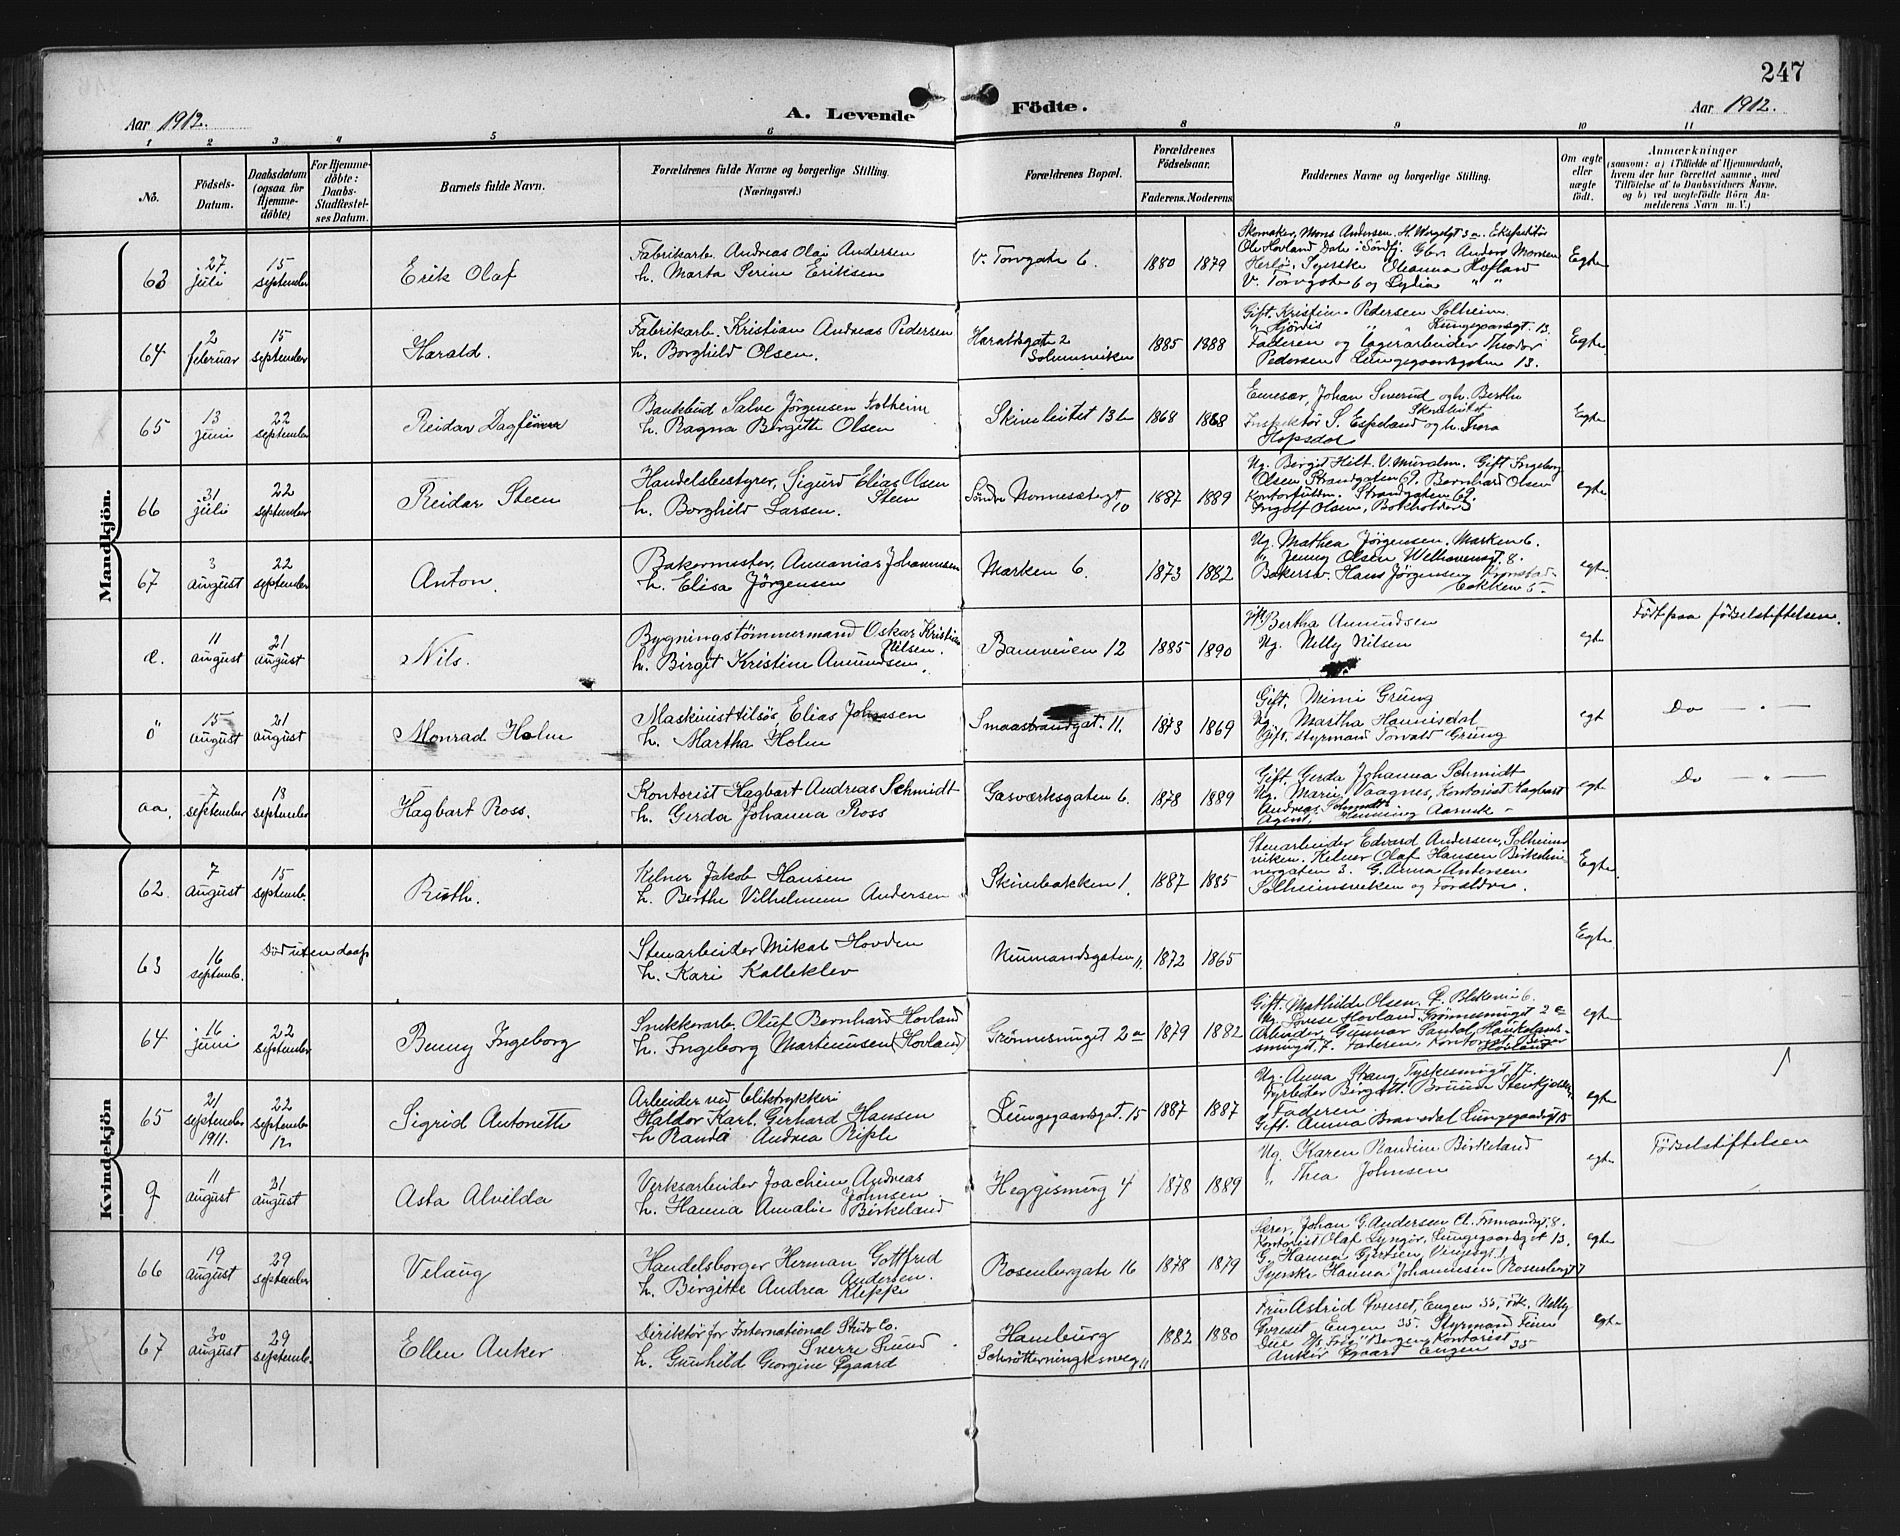 247
Aar 1912.
A. Levende Födte.
Aar 1912.
1 2 3 4 5 6 8 9 10 11
No.
Födsels-
Datum.
Daabsdatum
(ogsaa for
Hjemme-
døbte)
For Hjemme-
døbte:
Daabs-
Stadfæstel-
ses Datum.
Barnets fulde Navn.
Forældrenes fulde Navne og borgerlige Stilling.
(Næringsvei.)
Forældrenes Bopæl.
Forældrenes
Födselsaar.
Faderens. Moderens
Faddernes Navne og borgerlige Stilling.
Om ægte
eller
uægte
födt.
Anmærkninger
(saasom: a) i Tilfælde af Hjemmedaab,
hvem der har forrettet samme, med
Tilföielse af to Daabsvidners Navne,
og b) ved uægtefödte Börn An-
melderens Navn m. V.)
Mandkjön.
63
27
juli
15
september
Erik Olaf
Fabrikarb. Andreas Olai Andersen
h. Marta Serine Eriksen
V. Torvgate 6.
1880 1879
Skomaker, Mons Andersen
Ole Hovland Dale i Söndfj. Gbr. Anders Monsen
Herlö, Syerske Oleanna Hofland
V. Torvgate 6 og Lydia " "
Egte
64
2
februar
15
september
Harald.
Fabrikarb. Kristian Andreas Pedersen
h. Borghild Olsen.
Haraldsgate 2
Solheimsviken
1885 1888
Gift. Kristine Pedersen Solheim.
" Hjördis " Lungegaardsgt. 13.
Faderen og Lagerarbeider Theodor
Pedersen Lungegaardsgaten 13.
Egte.
65
13
juni
22
september
Reidar Dagfinn
Bankbud Salve Jörgensen Tolheim
h. Ragna Birgitte Olsen
Skiveleitet 13b
1868 1868
Johan Sverud og h. Berthe
Inspektör S. Espeland og h. Thora
Hopsdal
Egte
66
31
juli
22
september
Reidar Steen
Handelsbestyrer, Sigurd Elias Olsen
Steen
h. Borghild Larsen.
Söndre Nonnesætergt
10
1887 1889
Ug. Birgit Hilt. V. Muralm. Gift Ingeborg
Olsen Strandgaten 61. Bernhard Olsen
Kontorfuldm. Strandgaten 69.
Ingolf Olsen, Bokholder
egte
67
3
august
22
september
Anton.
Bakermester, Annanias Johannesen
h. Elisa Jörgensen
Marken 6.
1873 1882
Ug. Mathea Jörgensen. Marken 6.
" Jenny Olsen Welhavensgt. 8.
Bakersv. Hans Jörgensen
bakken 5
egte
e.
11
august
21
august
Nils.
Bygningstömmermand Oskar Kristian
Nilsen.
h. Birgit Kristine Amundsen
Baneveien 12
1885 1890
Gift Bertha Amundsen
Ug. Nelly Nilsen
egte
Födt paa Födselstiftelsen.
ö
15
august
21
august
Monrad Holm
Maskinisttilsös, Elias Johnssen
h. Martha Holm
Smaastrandgat. 11.
1873 1869
Gift. Mimi Grung
Ug. Martha Hannisdal
Gift. Styrmand Torvald Grung
egt
Do — " —
aa.
7
september
18
september
Hagbart Ross.
Kontorist Hagbart Andreas Schmidt
h. Gerda Johanna Ross
Gasværksgaten 6.
1878 1889
Gift. Gerda Johanna Schmidt
Ug. Marie Vaagnes, Kontorist Hagbart
Andreas Schmidt
Agent, Henning
egt
Do — " —
Kvindekjön
62
7
August
15
septemb.
Ruth.
Kelner Jakob Hansen
h. Berthe Vilhelmine Andersen
Skivebakken 1.
1887 1885
Stenarbeider Edvard Andersen, Solheims
viken. Kelner Olaf Hansen Birkelun
nergaten 3. G. Anna Antersen
Solheimsviken og Forældre.
Egte.
63
16
septemb.
Död uten daap
Stenarbeider Mikal Hovden
h. Kari Kalleklev
Neumandsgaten 11.
1872 1865
Egte
64
16
juni
22
september
Benny Ingeborg
Snekkerarb. Oluf Bernhard Hovland
h. Ingeborg Martinusen (Hovland)
Grönnesmuget 2a
1879 1882
Gift. Mathilde Olsen. Blekevei 6.
Ug. Lovise Hovland Grönnesmuget 2a
Arbeider, Gunnar Sandal Haukelands-
smuget 7. Faderen, Kontorist Birger
Hovland
egte
65
21
september
1911.
22
september
12
Sigrid Antonette
Arbeider ved bliktrykkeri
Haldor Karl. Gerhard Hansen
h. Randa Andrea Riple
Lungegaardsgat. 15
1887 1887
Ug. Anna Strang Tyskesmugt 17.
Fyrböter Birgitt. Bruun Stenkjelsen
Faderen
Gift. Anna Bransdal Lungegaardsgt 15
egte
g
11
august
21
august
Asta Alvilda
Verksarbeider Joachim Andreas
Johnsen
h. Hanna Amalie Birkeland
Heggismug 4
1878 1889
Ug. Karen Randine Birkeland
" Thea Johnsen
egte
Födselstiftelsen
66
19
august
29
september
Velaug
Handelsborger Herman Gottfred
Andersen.
h. Birgitte Andrea Kleppe
Rosenbergate 16
1878 1879
Lærer, Johan G. Andersen Cl. Frimandsgt. 8.
Kontorist Olaf Lyngör, Lungegaardsgt 13,
G. Hanna Gjertsen,
Syerske Hanna Johannesen Rosenbergt 7
egte
67
30
august
29
septemb.
Ellen Anker
Direktör for International Studs Co.
Sverre Lund
h. Gunhild Georgine Ögaard
Hamburg
Schrötteringksweg 11
1882 1880
Fru Astrid Qvreset, Eugen 35, Frk. Nelly
Qvreset Eugen 35. Styrmand
Due D/S "Frisö" Bergen, Kontorist
Anker Ögaard Eugen 35
egte